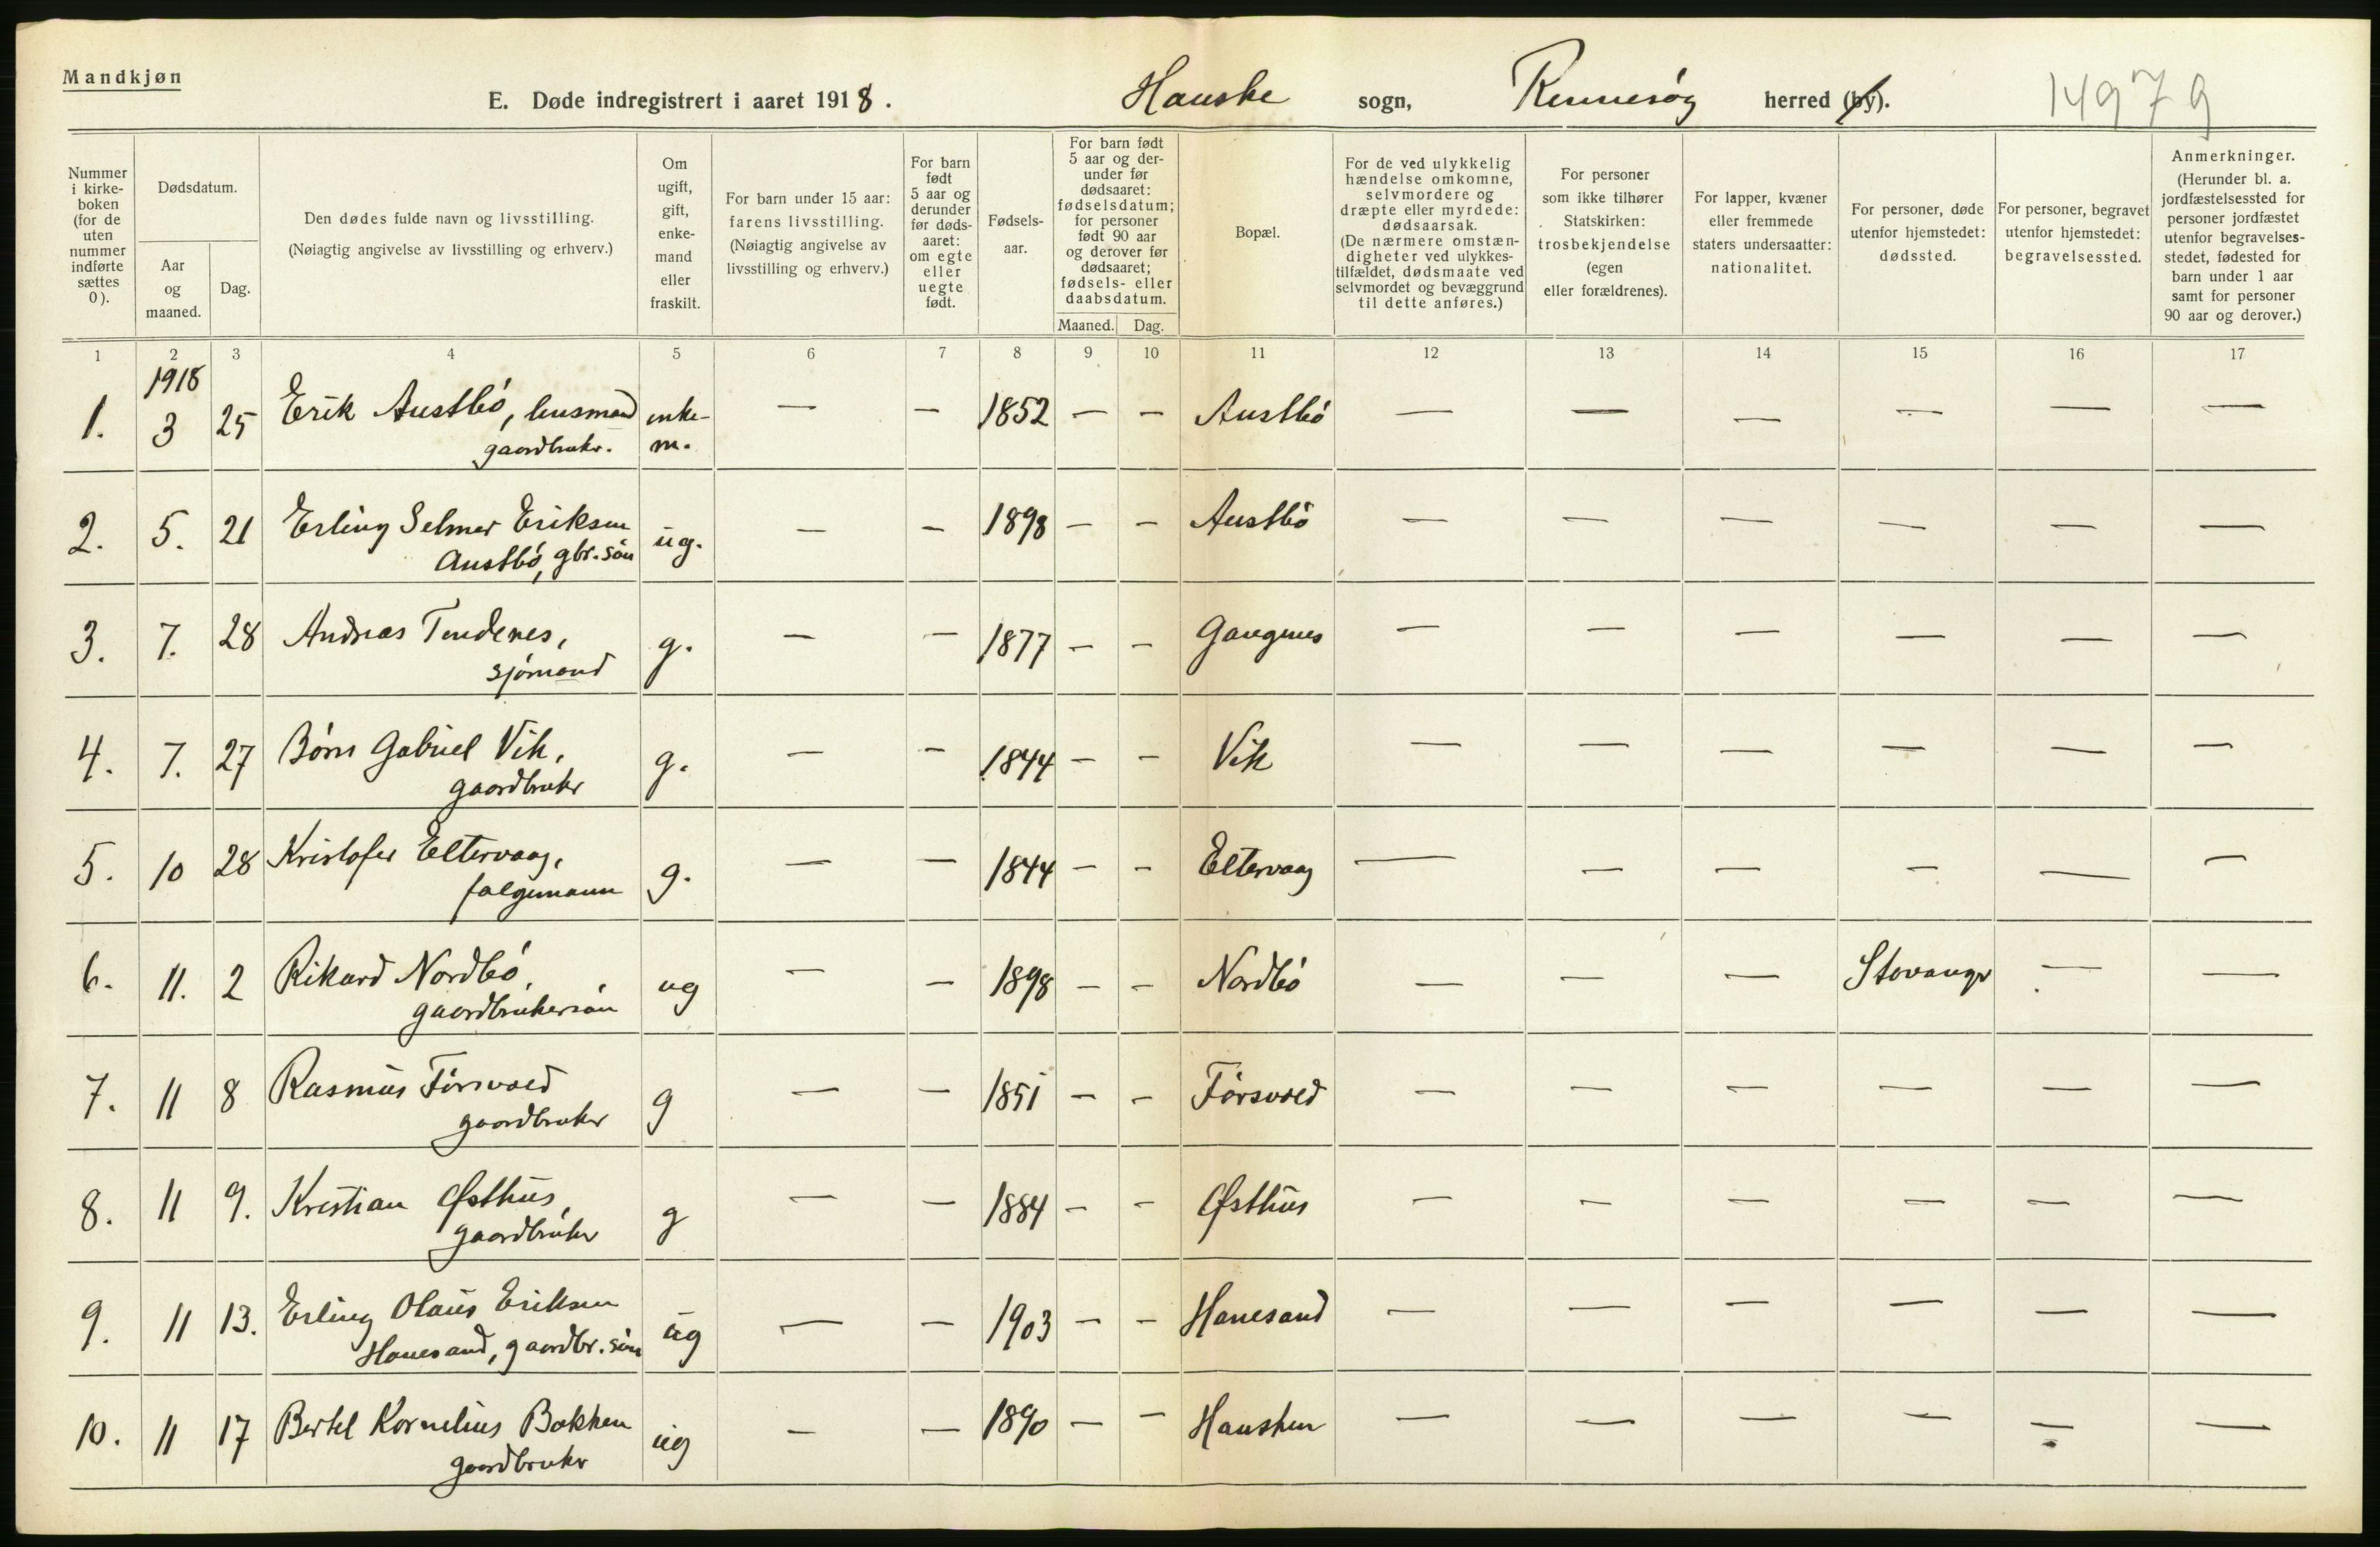 Mandkjøn
E. Døde indregistrert i aaret 1918. Hauske sogn, Rennesøy herred (by). 14979
Nummer i kirke- boken (for de uten nummer indførte sættes 0).
Dødsdatum.
Aar og maaned.
Dag.
Den dødes fulde navn og livsstilling.
(Nøiagtig angivelse av livsstilling og erhverv.)
Om ugift, gift, enke- mand eller fraskilt.
For barn under 15 aar: farens livsstilling. (Nøiagtig angivelse av livsstilling og erhverv.)
For barn født 5 aar og derunder før døds- aaret: om egte eller uegte født.
Fødsels- aar.
For barn født 5 aar og der- under før dødsaaret: fødselsdatum; for personer født 90 aar og derover før dødsaaret; fødsels- eller daabsdatum.
Maaned. Dag.
Bopæl.
For de ved ulykkelig hændelse omkomne, selvmordere og dræpte eller myrdede: dødsaarsak. (De nærmere omstæn- digheter ved ulykkes- tilfældet, dødsmaate ved selvmordet og bevæggrund til dette anføres.)
For personer som ikke tilhører Statskirken: trosbekjendelse (egen eller forældrenes).
For lapper, kvæner eller fremmede staters undersaatter: nationalitet.
For personer, døde utenfor hjemstedet: dødssted.
For personer, begravet utenfor hjemstedet: begravelsessted.
Anmerkninger. (Herunder bl. a. jordfæstelsessted for personer jordfæstet utenfor begravelses- stedet, fødested for barn under 1 aar samt for personer 90 aar og derover.)
1 2 3 4 5 6 7 8 9 10 11 12 13 14 15 16 17
1918
1. 3 25 Erik Austbó, husmand enke- — — 1852 — — Austbó — — — — — —
gaardbruker. m.
2. 5. 21 Erling Selmer Eriksen ug. — — 1898 — — Austbó — — — — — —
Austbó, gbr. sön
3. 7. 28 Andreas Tendenes, g. — — 1877 — — Gangenes — — — — — —
sjómand
4. 7. 27 Börre Gabriel Vik, g. — — 1844 — — Vik — — — — — —
gaardbruker
5. 10 28 Kristofer Eltervaag, g. — — 1844 — — Eltervaag — — — — — —
folgemann
6. 11. 2 Rikard Nordbó, ug — — 1898 — — Nordbó — — — Stavanger — —
gaardbrukersön
7. 11 8 Rasmus Försvold g — — 1851 — — Försvold — — — — — —
gaardbruker
8. 11 9. Kristian Østhus, g — — 1884 — — Østhus — — — — — —
gaardbruker
9. 11 13. Erling Olaus Eriksen ug — — 1903 — — Hanesand — — — — — —
Hanesand, gaardbr. sön
10. 11 17 Bertel Kornelius Bakken ug — — 1890 — — Hausken — — — — — —
gaardbruker